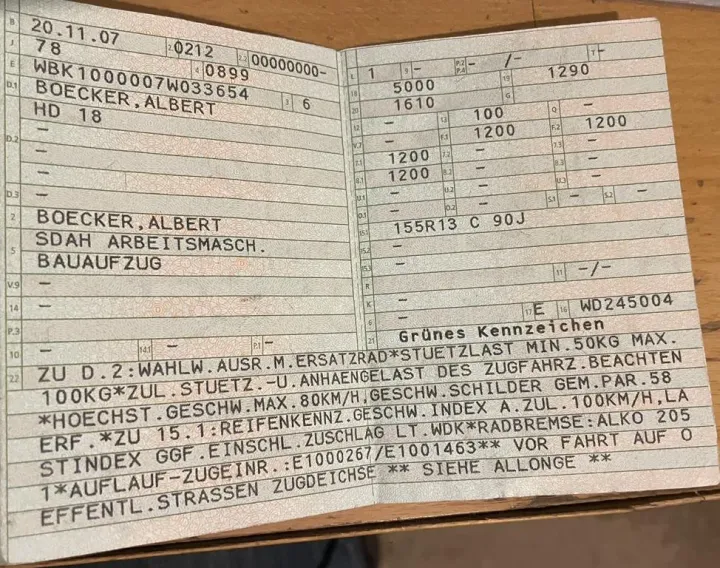 B 20.11.07 2.1 0212 2.2 00000000-
J 78 4 0899
E WBK1000007W033654 3 6
D.1 BOECKER,ALBERT
HD 18
D.2 -
-
-
D.3 -
2 BOECKER,ALBERT
5 SDAH ARBEITSMASCH.
BAUAUFZUG
V.9 -
14 -
P.3 -
10 - 14.1 - P.1 -
L 1 9 - P.2 P.4 - /- T -
18 5000 19 1290
20 1610 G
12 - 13 100 Q -
V.7 - F.1 1200 F.2 1200
7.1 1200 7.2 - 7.3 -
8.1 1200 8.2 - 8.3 -
U.1 - U.2 - U.3 -
O.1 - O.2 - S.1 - S.2 -
15.1 155R13 C 90J
15.2 -
15.3 -
R - 11 -/-
K -
6 - 17 E 16 WD245004
21 Grünes Kennzeichen
22 ZU D.2:WAHLW.AUSR.M.ERSATZRAD*STUETZLAST MIN.50KG MAX.
100KG*ZUL.STUETZ.-U.ANHAENGELAST DES ZUGFAHRZ.BEACHTEN
*HOECHST.GESCHW.MAX.80KM/H,GESCHW.SCHILDER GEM.PAR.58
ERF.*ZU 15.1:REIFENKENNZ.GESCHW.INDEX A.ZUL.100KM/H,LA
STINDEX GGF.EINSCHL.ZUSCHLAG LT.WDK*RADBREMSE:ALKO 205
1*AUFLAUF-ZUGEINR.:E1000267/E1001463** VOR FAHRT AUF O
EFFENTL.STRASSEN ZUGDEICHSE ** SIEHE ALLONGE **